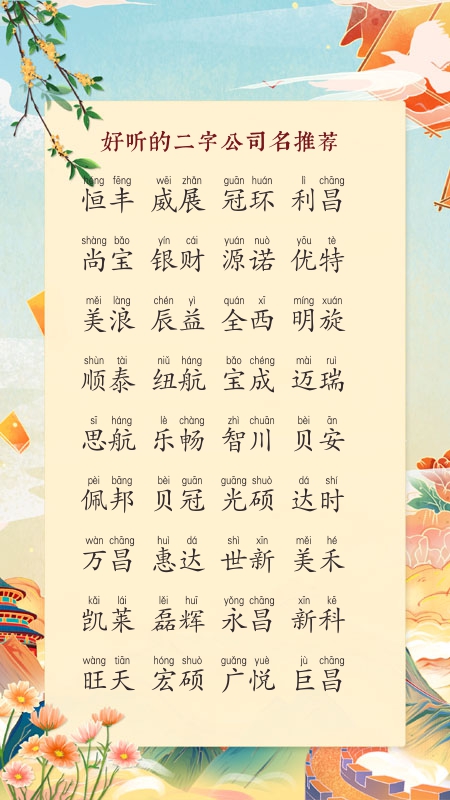 好听的二字公司名推荐
héng fēng wēi zhǎn guān huán lì chāng
恒丰 威展 冠环 利昌
shàng bǎo yín cái yuán nuò yōu tè
尚宝 银财 源诺 优特
měi làng chén yì quán xī míng xuán
美浪 辰益 全西 明旋
shùn tài niǔ háng bǎo chéng mài ruì
顺泰 纽航 宝成 迈瑞
sī háng lè chàng zhì chuān bèi ān
思航 乐畅 智川 贝安
pèi bāng bèi guān guāng shuò dá shí
佩邦 贝冠 光硕 达时
wàn chāng huì dá shì xīn měi hé
万昌 惠达 世新 美禾
kǎi lái lěi huī yǒng chāng xīn kē
凯莱 磊辉 永昌 新科
wàng tiān hóng shuò guǎng yuè jù chāng
旺天 宏硕 广悦 巨昌